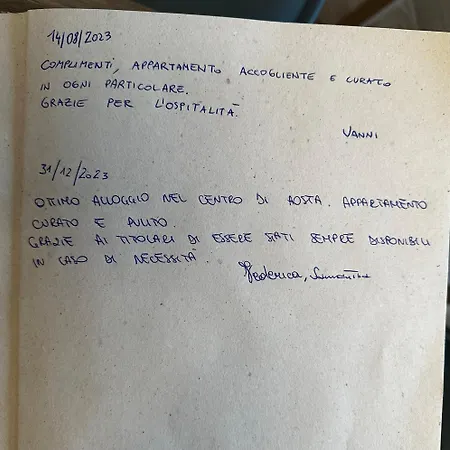 14/08/2023
COMPLIMENTI, APPARTAMENTO ACCOGLIENTE E CURATO
IN OGNI PARTICOLARE.
GRAZIE PER L'OSPITALITÀ.
VANNI
31/12/2023
OTTIMO ALLOGGIO NEL CENTRO DI AOSTA. APPARTAMENTO
CURATO E PULITO.
GRAZIE AI TITOLARI DI ESSERE STATI SEMPRE DISPONIBILI
IN CASO DI NECESSITÀ.
Federica, Samantha